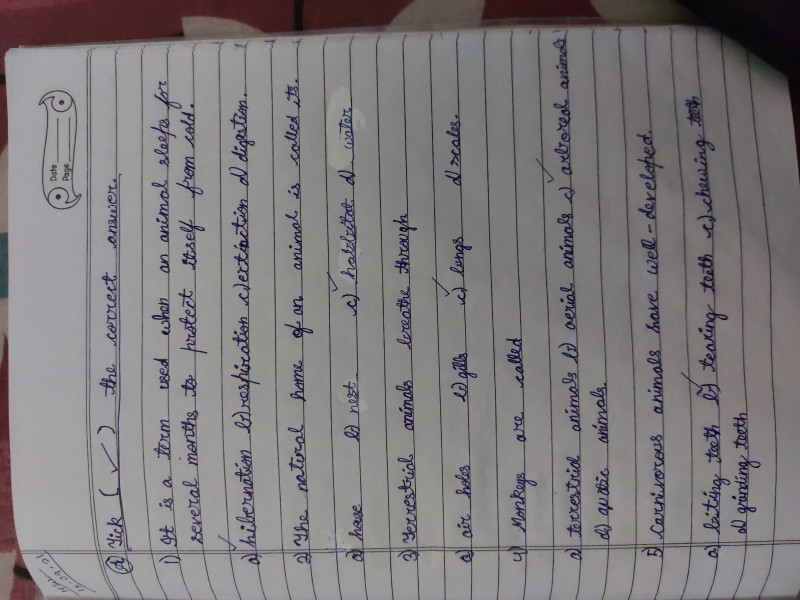 Date
Page
Q2 Tick (✓) the correct answer.
1) It is a term used when an animal sleeps for
several months to protect itself from cold.
a) hibernation b) respiration c) extinction d) digestion.
2) The natural home of an animal is called its.
a) house b) nest c) habitat d) water
3) Terrestrial animals breathe through
a) air holes b) gills c) lungs d) scales.
4) Monkeys are called
a) terrestrial animals b) aerial animals c) arboreal animals
d) animals.
5) Carnivorous animals have well-developed.
a) biting teeth b) tearing teeth c) chewing teeth
d) grinding teeth